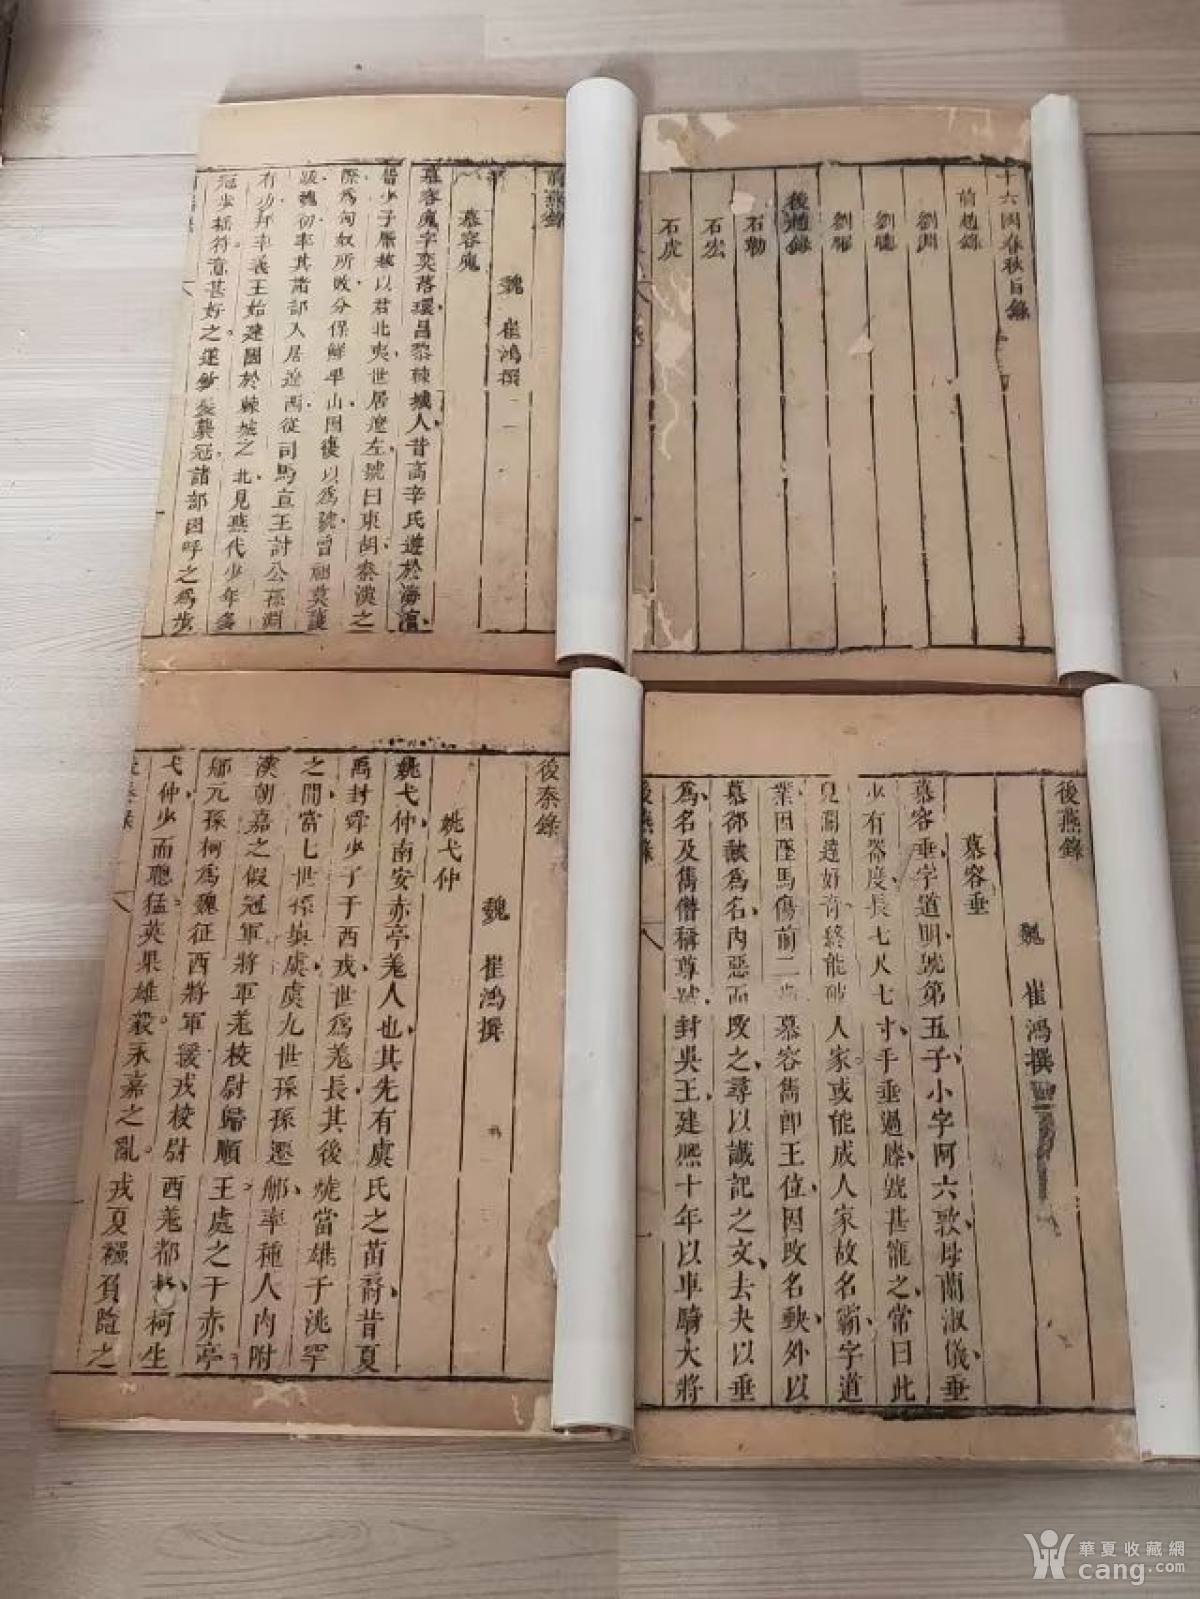 十六國春秋目錄
前趙錄
劉淵
劉聰
劉曜
後趙錄
石勒
石宏
石虎
前燕錄
魏 崔鴻撰
慕容廆
慕容廆字奕落瓌昌黎棘城人昔高辛氏遊於海濱
留少子厭越以君北夷世居遼左號曰東胡秦漢之
際為匈奴所敗分保鮮卑山因復以為號曾祖莫護
跋魏初率其諸部入居遼西從司馬宣王討公孫淵
有功拜率義王始建國於棘城之北見燕代少年多
冠步搖冠意甚好之遂斂髮襲冠諸部因呼之為步
後燕錄
魏 崔鴻撰
慕容垂
慕容垂字道明皝第五子小字阿六敦母蘭淑儀垂
少有器度長七尺七寸手垂過膝皝甚寵之常曰此
兒闊達好奇終能破人家或能成人家故名霸字道
業因墜馬傷前二齒慕容儁即王位因改名𡙇外以
慕郤缺為名內惡而改之尋以讖記之文去夬以垂
為名及儁僭稱尊號封吳王建熙十年以車騎大將
後燕錄
後秦錄
魏 崔鴻撰
姚弋仲
姚弋仲南安赤亭羌人也其先有虞氏之苗裔昔夏
禹封舜少子于西戎世為羌長其後燒當雄于洮罕
之間當七世孫填虞虞九世孫孫遷那率種人內附
漢朝嘉之假冠軍將軍羌校尉歸順王處之于赤亭
那元孫柯為魏征西將軍綏戎校尉西羌都 柯生
弋仲少而聰猛英果雄毅永嘉之亂戎夏襁負隨之
華夏收藏網
cang.com